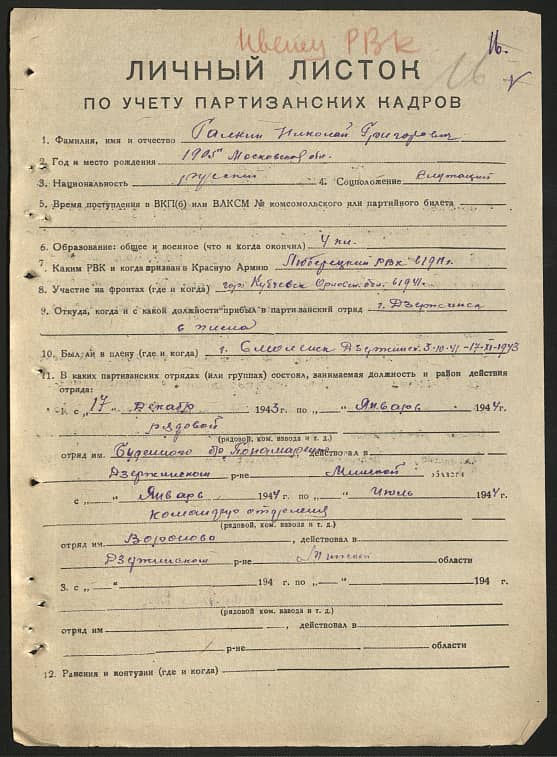 РВК
16.
16
ЛИЧНЫЙ ЛИСТОК
ПО УЧЕТУ ПАРТИЗАНСКИХ КАДРОВ
1. Фамилия, имя и отчество Галкин Николай Григорович
2. Год и место рождения 1905 Московской обл.
3. Национальность русский 4. Соцположение Служащий
5. Время поступления в ВКП(б) или ВЛКСМ № комсомольского или партийного билета
6. Образование: общее и военное (что и когда окончил) 4 кл.
7. Каким РВК и когда призван в Красную Армию Люберецкий РВК в 1941 г.
8. Участие на фронтах (где и когда) гор. Орловс. обл. в 1941 г.
9. Откуда, когда и с какой должности прибыл в партизанский отряд г. Дзержинск
в плена
10. Был ли в плену (где и когда) г. Смоленск Дзержинск 3-10-41-17-XII-1943
11. В каких партизанских отрядах (или группах) состоял, занимаемая должность и район действия
отряда:
1. с „17“ Декабр 1943 г. по „ “ Январь 1944 г.
рядовой
(рядовой, ком. взвода и т. д.)
отряд им. Буденного бр. Пономаренко, действовал в
Дзержинском р-не Минской области
с „ “ Январь 1944 г. по „ “ Июль 1944 г.
командир отделения
(рядовой, ком. взвода и т. д.)
отряд им. Воронова, действовал в
Дзержинском р-не Минской области
3. с „ “ 194 г. по „ “ 194 г.
(рядовой, ком. взвода и т. д.)
отряд им , действовал в
р-не области
12. Ранения и контузии (где и когда)